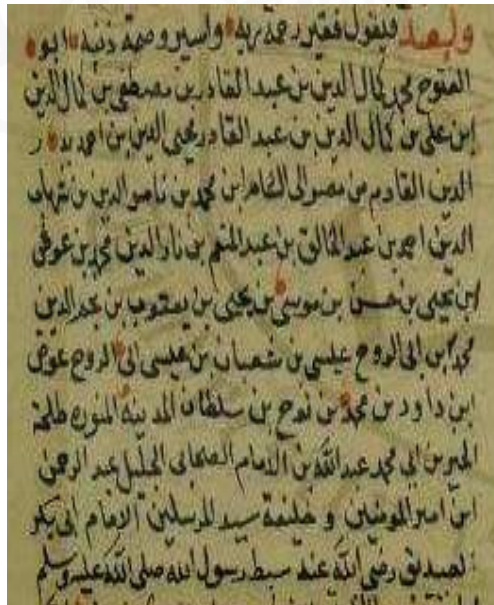 وبعد فيقول فقير رحمة ربه واسير وصمة ذنبه ابو
الفتوح محمد كمال الدين بن عبد القادر بن مصطفى بن كمال الدين
ابن علي بن كمال الدين بن عبد القادر محيى الدين بن احمد بدر
الدين القادم من مصر الى الشام ابن محمد بن ناصر الدين بن شهاب
الدين احمد بن عبد الخالق بن عبد المنعم بن الدين محمد بن عوض
ابن يحيى بن حسن بن موسى بن يحيى بن يعقوب بن نجم الدين
محمد ابن ابى الروح عيسى بن شعبان بن عيسى ابى الروح عوض
ابن داود بن محمد بن نوح بن سلطان المدينه المنوره طلحة
الخير بن ابى محمد عبد الله بن الامام الصحابى الجليل عبد الرحمن
ابن امير المومنين و خليفة سيد المرسلين الامام ابى بكر
لصديق رضى الله عنه سبط رسول الله صلى الله عليه وسلم